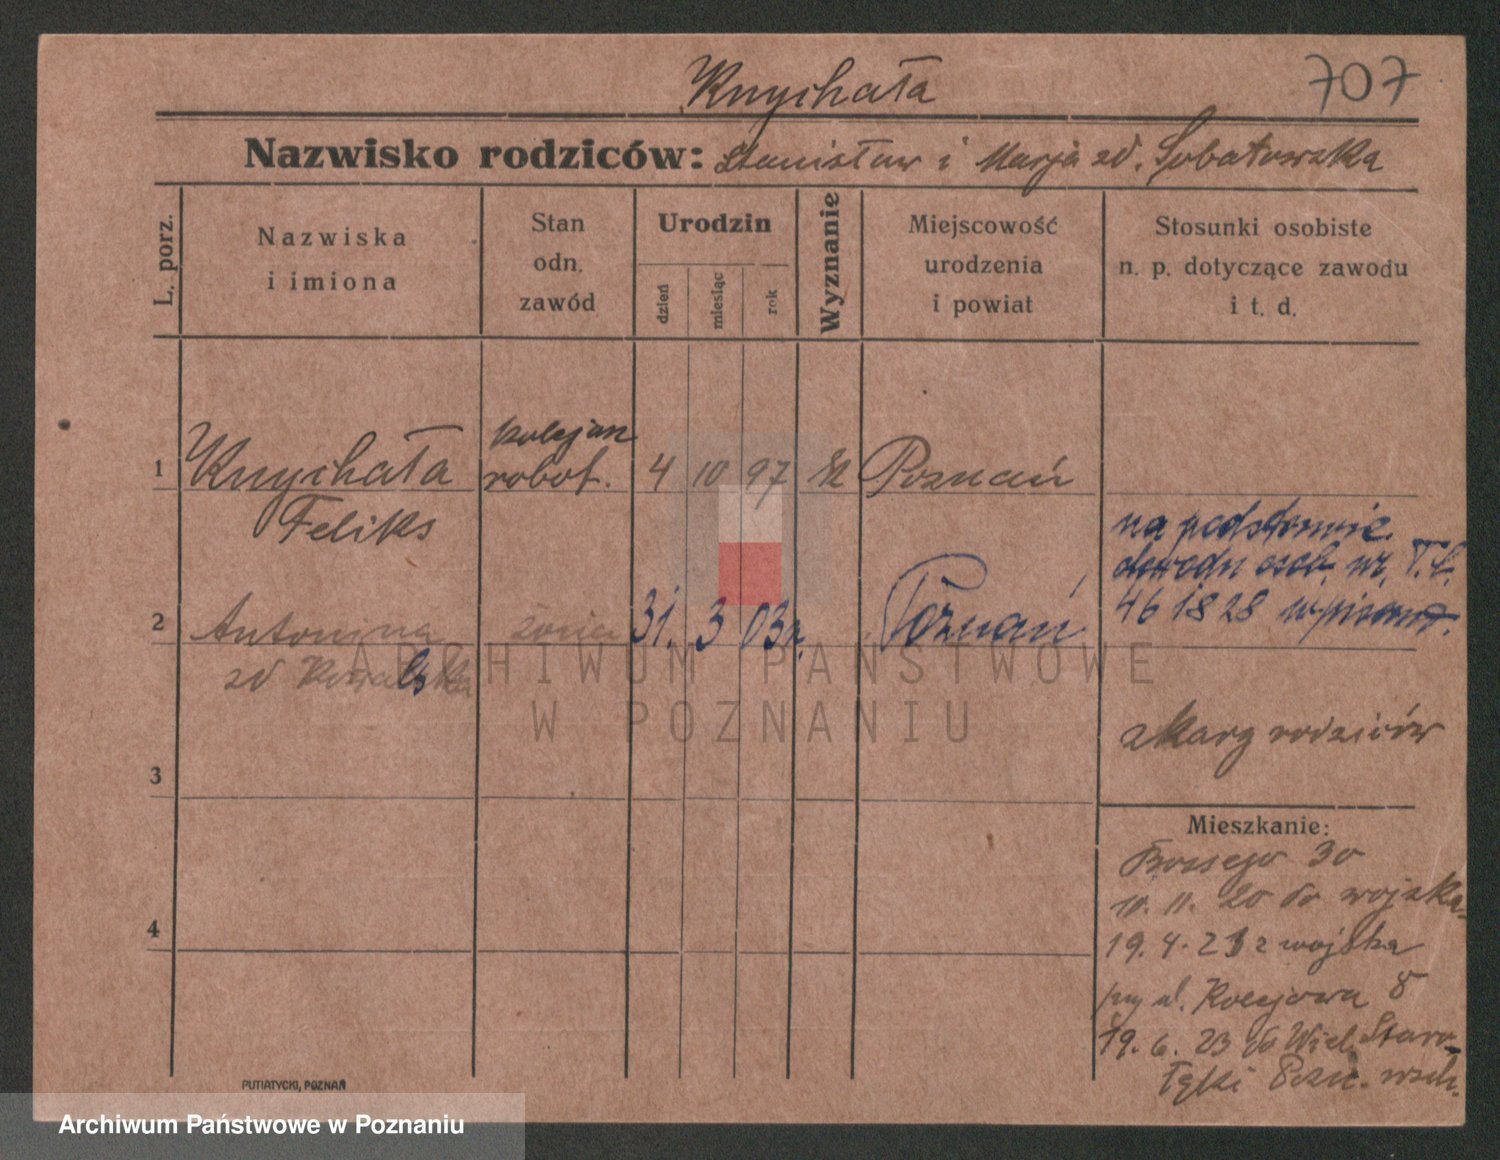 Knychała
707
Nazwisko rodziców: Stanisław i Marja zd. Sobatowska
L. porz.
Nazwiska
i imiona
Stan
odn.
zawód
Urodzin
dzień
miesiąc
rok
Wyznanie
Miejscowość
urodzenia
i powiat
Stosunki osobiste
n. p. dotyczące zawodu
i t. d.
1
Knychała
Feliks
kolejan
robot.
4
10
97
Poznań
na podstawie
dowodu osob. nr.
461828 wpisano.
2
Antonina
zd Kowalska
żona
31.
3
03r.
Poznań
z kary rodziców
3
Mieszkanie:
Bossego 30
10. 11. 20 do wojska
19. 4. 21 z wojska
przy ul. Kolejowa 8
19. 6. 23 do Wiel. Staro-
łęki Pozn. wsch.
4
PUTIATYCKI, POZNAŃ
ARCHIWUM PAŃSTWOWE
W POZNANIU
Archiwum Państwowe w Poznaniu